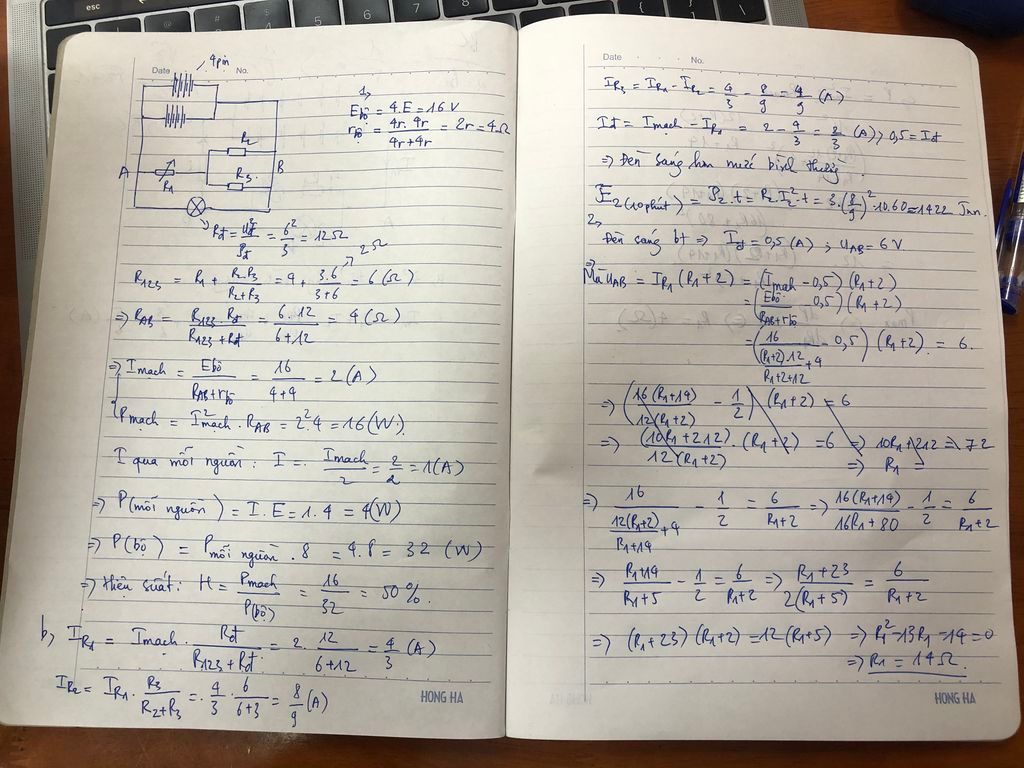 esc
Date
No.
4pin
A
B
R1
R2
R3
1,
Ebộ = 4.E = 16 V
rbộ = 4r. 4r / 4r+4r = 2r = 4Ω
Rđ = Uđ² / Pđ = 6² / 3 = 12Ω
2Ω
R123 = R1 + R2.R3 / R2+R3 = 4 + 3.6 / 3+6 = 6 (Ω)
=> RAB = R123. Rđ / R123 + Rđ = 6.12 / 6+12 = 4 (Ω)
=> Imạch = Ebộ / RAB+rbộ = 16 / 4+4 = 2 (A)
Pmạch = I²mạch. RAB = 2².4 = 16 (W)
I qua mỗi nguồn: I = Imạch / 2 = 2 / 2 = 1 (A)
=> P(mỗi nguồn) = I.E = 1.4 = 4(W)
=> P(bộ) = Pmỗi nguồn . 8 = 4.8 = 32 (W)
=> Hiệu suất: H = Pmạch / P(bộ) = 16 / 32 = 50%.
b, IR1 = Imạch. Rđ / R123 + Rđ = 2. 12 / 6+12 = 4/3 (A)
IR2 = IR1 . R3 / R2+R3 = 4/3 . 6 / 6+3 = 8/9 (A)
HONG HA
Date
No.
IR3 = IR1 - IR2 = 4/3 - 8/9 = 4/9 (A)
Iđ = Imạch - IR1 = 2 - 4/3 = 2/3 (A) > 0,5 = Iđ
=> Đèn sáng hơn mức bình thường.
E2(10phút) = P2.t = R2.I2².t = 3.(8/9)².10.60 = 1422 Jun.
2,
Đèn sáng bt => Iđ = 0,5 (A) ; UAB = 6 V
=>
Mà UAB = IR1 (R1+2) = (Imạch - 0,5) (R1+2)
= (Ebộ / RAB+rbộ - 0,5) (R1+2)
= (16 / (R1+2).12 / R1+2+12 + 4 - 0,5) (R1+2) = 6.
=> (16(R1+14) / 12(R1+2) - 1/2) (R1+2) = 6
=> (10R1+212) / 12(R1+2) . (R1+2) = 6 => 10R1+212 = 72
=> R1 =
=> 16 / 12(R1+2) / R1+14 + 4 - 1/2 = 6 / R1+2 => 16(R1+14) / 16R1+80 - 1/2 = 6 / R1+2
=> R1+14 / R1+5 - 1/2 = 6 / R1+2 => R1+23 / 2(R1+5) = 6 / R1+2
=> (R1+23)(R1+2) = 12(R1+5) => R1² - 13R1 - 14 = 0
=> R1 = 14Ω.
HONG HA